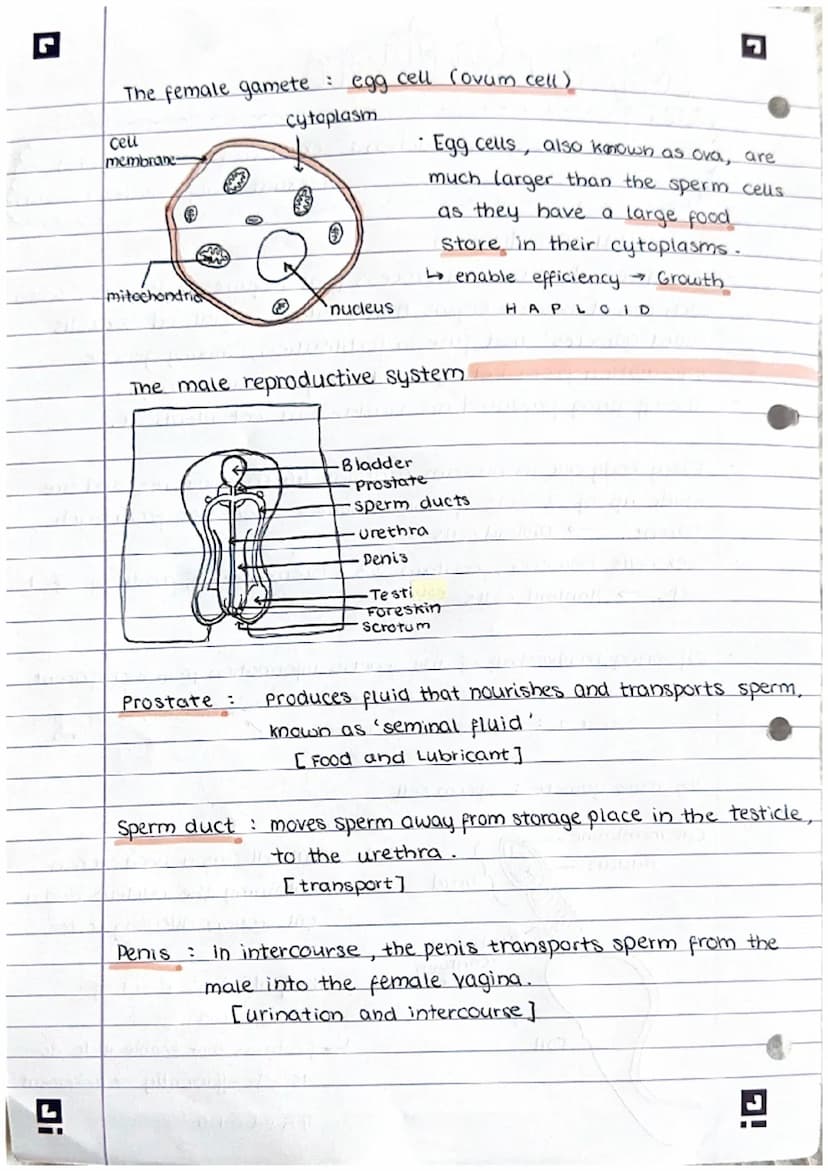 The female gamete : egg cell (ovum cell)
cytoplasm
cell
membrane
mitochondria
nucleus
· Egg cells, also known as ova, are
much larger than the sperm cells
as they have a large food
store in their cytoplasms.
↳ enable efficiency → Growth
H A P L O I D
The male reproductive system
Bladder
Prostate
sperm ducts
urethra
Penis
Testi
Foreskin
Scrotum
Prostate : Produces fluid that nourishes and transports sperm,
known as 'seminal fluid'
[Food and Lubricant]
Sperm duct : moves sperm away from storage place in the testicle,
to the urethra.
[transport]
Penis : In intercourse, the penis transports sperm from the
male into the female vagina.
[urination and intercourse]